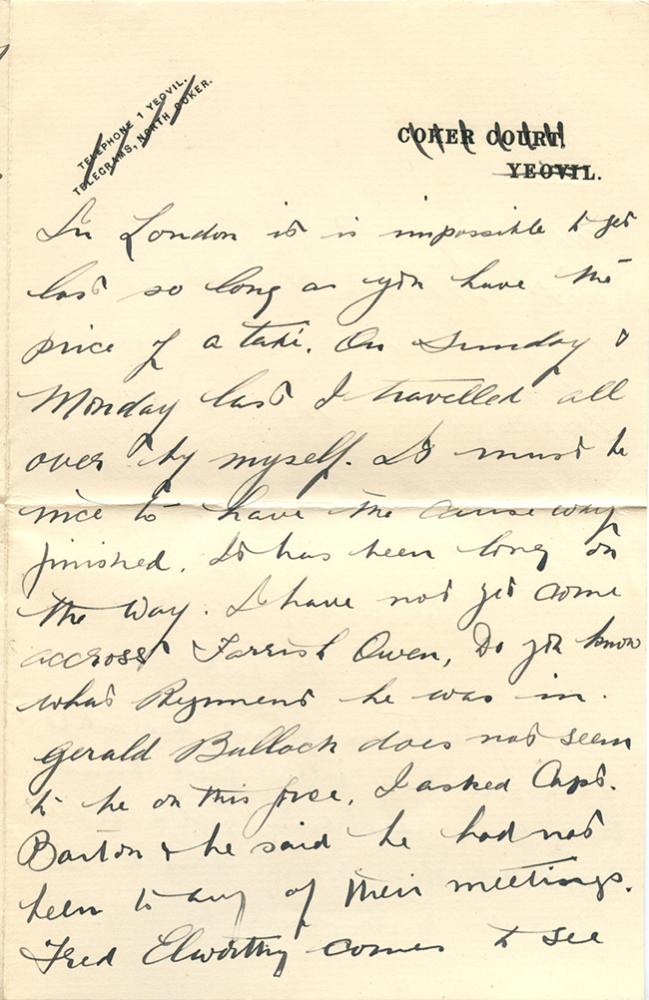 TELEPHONE 1 YEOVIL.
TELEGRAMS, NORTH COKER.
COKER COURT,
YEOVIL.
In London it is impossible to get
lost so long as you have the
price of a taxi. On Sunday &
Monday last I travelled all
over by myself. It must be
nice to have the causeway
finished. It has been long on
the way. I have not yet come
accross Farrish Owen, Do you know
what Regiment he was in.
Gerald Bullock does not seem
to be on this force, I asked Capt.
Barton & he said he had not
been to any of their meetings.
Fred Elworthy comes to see